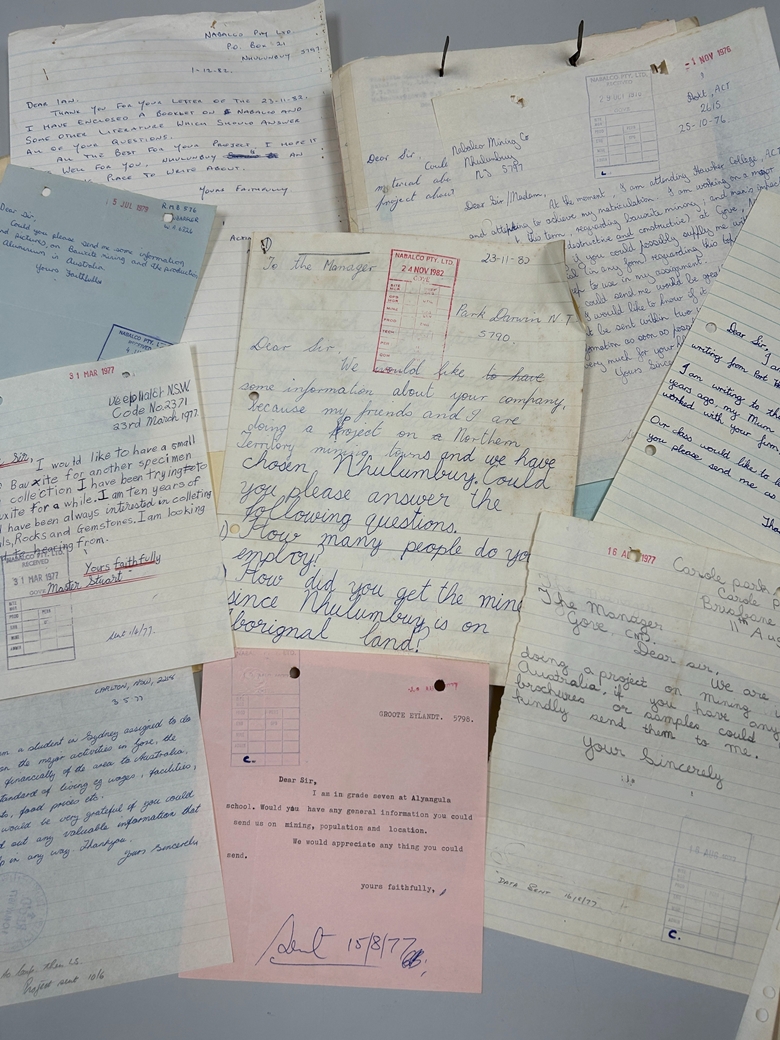 NABALCO PTY LTD
P.O. BOX 21
NHULUNBUY 5797
1-12-82
DEAR IAN,
THANK YOU FOR YOUR LETTER OF THE 23-11-82.
I HAVE ENCLOSED A BOOKLET ON NABALCO AND
SOME OTHER LITERATURE WHICH SHOULD ANSWER
ALL OF YOUR QUESTIONS.
ALL THE BEST FOR YOUR PROJECT, I HOPE IT
WELL FOR YOU, NHULUNBUY AN
PLACE TO WRITE ABOUT.
YOURS FAITHFULLY
-1 NOV 1976
NABALCO PTY. LTD.
Holt, ACT
2615
25-10-76.
Dear Sir,
Could
material abo
project about
Nabalco Mining Co
Nhulunbuy
N.T 5797
Dear Sir/Madam,
At the moment, I am attending Hawker College, ACT
and attempting to achieve my matriculation. I am working on a major
this term, regarding bauxite mining, and
destructive and constructive) at Gove,
if you could possibly supply me
(in any form) regarding this
to use in my assignment.
could send me would be great
I would like to know if it
be sent within two
information as soon as poss
very much for your
Yours Since
5 JUL 1979
Dear Sir,
Could you please send me some information
and pictures, on Bauxite mining and the production
Aluminium in Australia
Yours Faithfully
NABALCO PTY. LTD.
RECEIVED
To the Manager
NABALCO PTY. LTD.
24 NOV 1982
GOVE
23-11-82
Park Darwin N.T
5790.
Dear Sir
We would like to have
some information about your company,
because my friends and I are
doing a Project on a Northern
Territory mining towns and we have
chosen Nhulumbuy. Could
you please answer the
following questions.
1) How many people do yo
employ?
) How did you get the mine
since Nhulumbuy is on
borignal land?
Dear Sir,
writing from
I am writing to th
years ago, my Mum
worked with your firm,
Our class would like to
you please send me as
Tha
31 MAR 1977
N.S.W.
Code No. 2371
23rd March 1977
Sir,
I would like to have a small
Bauxite for another specimen
collection I have been trying to
xite for a while. I am ten years of
have been always interested in colleting
ls, Rocks and Gemstones. I am looking
to hearing from.
Yours faithfully
Master Stuart
NABALCO PTY. LTD.
RECEIVED
31 MAR 1977
GOVE
sent 1/4/77.
16 AUG 1977
Carole park
Carole P
Brisbane
11th Au
The Manager
Gove
Dear sir,
We are
doing a project on mining
Australia, if you have any
brochures or samples could
kindly send them to me.
Your Sincerely
"DATA SENT 16/8/77
C.
CARLTON, NSW, 2218
3.5.77
m a student in Sydney assigned to do
on the major activities in Gove, the
financially of the area to Australia,
standard of living eg wages, facilities,
ts, food prices etc.
would be very grateful if you could
d out any valuable information that
lp in any way. Thankyou.
Yours Sincerely
Project sent 10/6
GROOTE EYLANDT. 5798.
C.
Dear Sir,
I am in grade seven at Alyangula
school. Would you have any general information you could
send us on mining, population and location.
We would appreciate any thing you could
send.
yours faithfully,
Sent 15/8/77